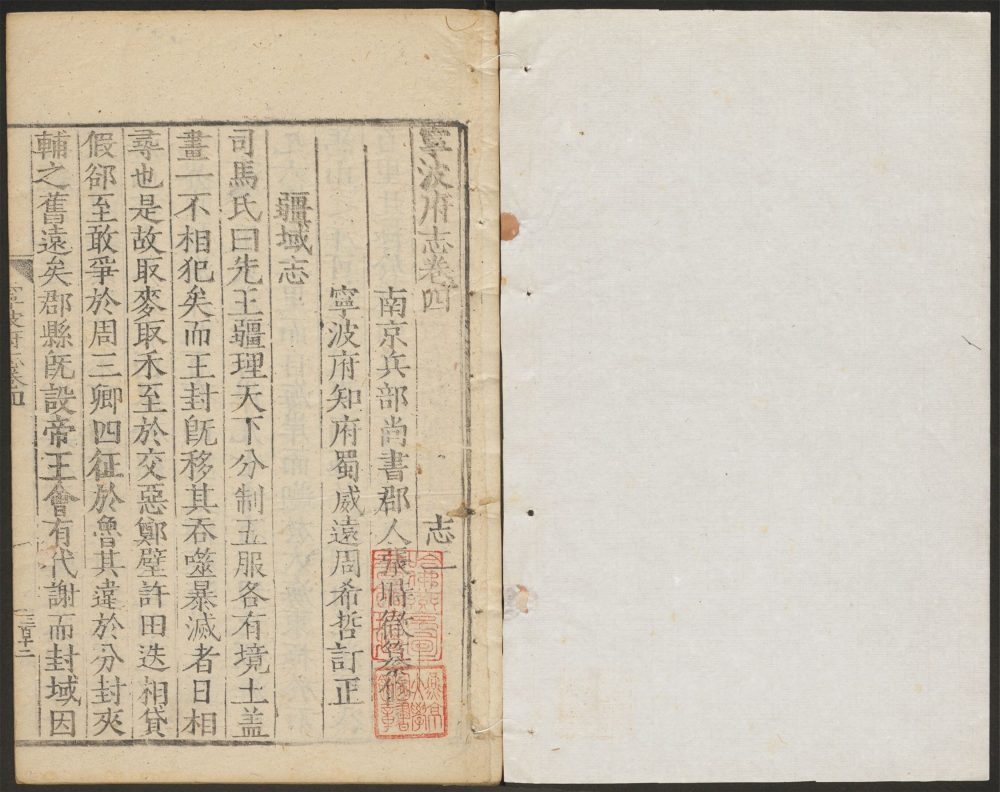 寧波府志卷四 志二
南京兵部尚書郡人張時徹纂修
寧波府知府蜀威遠周希哲訂正
疆域志
司馬氏曰先王疆理天下分制五服各有境土盖
畫一不相犯矣而王封旣移其吞噬暴滅者日相
尋也是故取麥取禾至於交惡鄭璧許田迭相貸
假郤至敢爭於周三卿四征於魯其違於分封夾
輔之舊遠矣郡縣旣設帝王會有代謝而封域因
寧波府志卷四